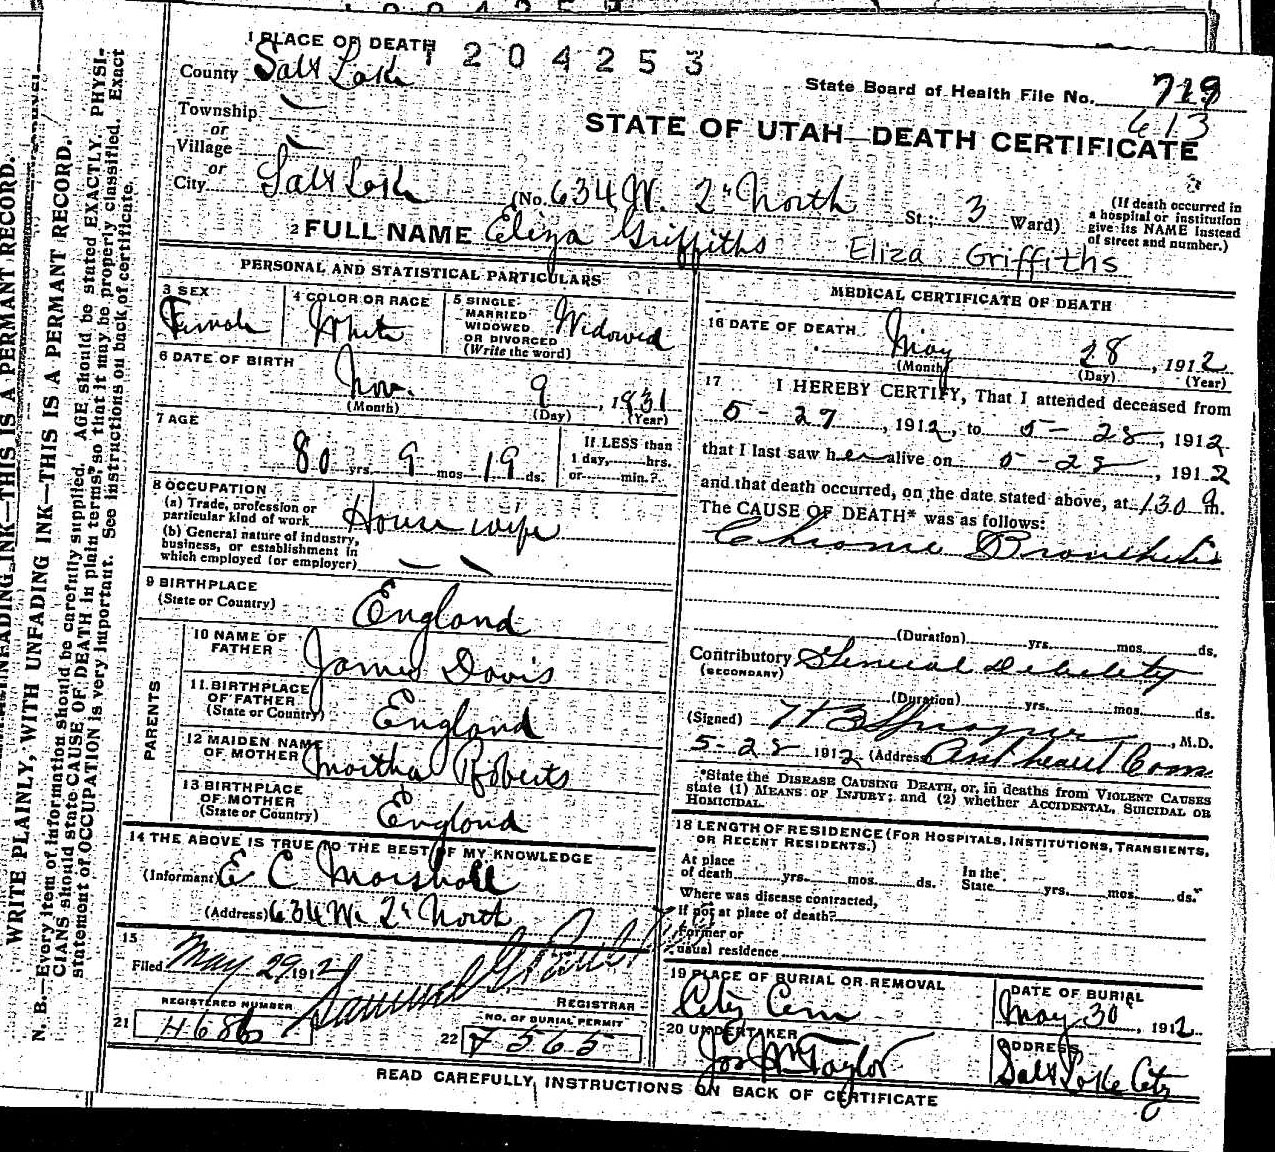 WRITE PLAINLY, WITH UNFADING INK—THIS IS A PERMANT RECORD.
N. B.—Every item of information should be carefully supplied. AGE should be stated EXACTLY. PHYSI-
CIANS should state CAUSE OF DEATH in plain terms so that it may be properly classified. Exact
statement of OCCUPATION is very important. See instructions on back of certificate.
1 PLACE OF DEATH
1204253
County Salt Lake
State Board of Health File No. 719
613
Township —
or
Village —
or
City Salt Lake
STATE OF UTAH—DEATH CERTIFICATE
(No. 634 W. 2" North St.; 3 Ward)
(If death occurred in
a hospital or institution
give its NAME instead
of street and number.)
2 FULL NAME Eliza Griffiths Eliza Griffiths
PERSONAL AND STATISTICAL PARTICULARS
3 SEX Female
4 COLOR OR RACE White
5 SINGLE
MARRIED
WIDOWED
OR DIVORCED
(Write the word)
Widowed
6 DATE OF BIRTH
Nov. 9, 1831
(Month) (Day) (Year)
7 AGE
80 yrs. 9 mos. 19 ds.
If LESS than
1 day, hrs.
or min.?
8 OCCUPATION
(a) Trade, profession or
particular kind of work House wife
(b) General nature of industry,
business, or establishment in
which employed (or employer) — —
9 BIRTHPLACE
(State or Country) England
PARENTS
10 NAME OF
FATHER James Davis
11 BIRTHPLACE
OF FATHER
(State or Country) England
12 MAIDEN NAME
OF MOTHER Martha Roberts
13 BIRTHPLACE
OF MOTHER
(State or Country) England
14 THE ABOVE IS TRUE TO THE BEST OF MY KNOWLEDGE
(Informant) E C Marshall
(Address) 634 W. 2" North
15
Filed May 29 1912 Samuel G Paul
REGISTRAR
REGISTERED NUMBER
21 H686
NO. OF BURIAL PERMIT
22 7565
MEDICAL CERTIFICATE OF DEATH
16 DATE OF DEATH
May 28, 1912
(Month) (Day) (Year)
17 I HEREBY CERTIFY, That I attended deceased from
5-27, 1912, to 5-28, 1912
that I last saw her alive on 5-28, 1912
and that death occurred, on the date stated above, at 130 a m.
The CAUSE OF DEATH* was as follows:
Chronic Bronchitis
(Duration) yrs. mos. ds.
Contributory General Debility
(SECONDARY)
(Duration) yrs. mos. ds.
(Signed) M.D.
5-28 1912 (Address) Asst health Com
*State the DISEASE CAUSING DEATH, or, in deaths from VIOLENT CAUSES
state (1) MEANS OF INJURY; and (2) whether ACCIDENTAL, SUICIDAL OR
HOMICIDAL.
18 LENGTH OF RESIDENCE (FOR HOSPITALS, INSTITUTIONS, TRANSIENTS,
OR RECENT RESIDENTS.)
At place
of death yrs. mos. ds.
In the
State yrs. mos. ds.
Where was disease contracted,
if not at place of death?
Former or
usual residence
19 PLACE OF BURIAL OR REMOVAL
City Cem
DATE OF BURIAL
May 30, 1912
20 UNDERTAKER
Jos Wm Taylor
ADDRESS
Salt Lake City
READ CAREFULLY INSTRUCTIONS ON BACK OF CERTIFICATE